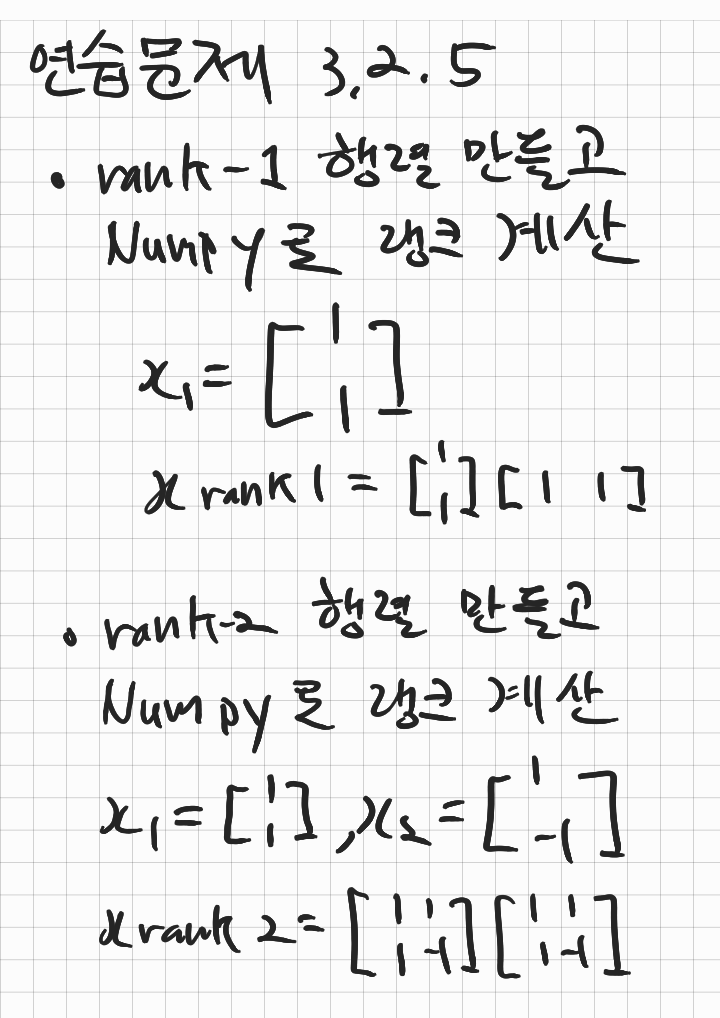 연습문제 3.2.5
• rank-1 행렬 만들고
Numpy로 랭크 계산
x₁ = [1
1]
x rank 1 = [1
1] [1 1]
• rank-2 행렬 만들고
Numpy로 랭크 계산
x₁ = [1
1], x₂ = [1
-1]
x rank 2 = [1 1
1 -1] [1 1
1 -1]